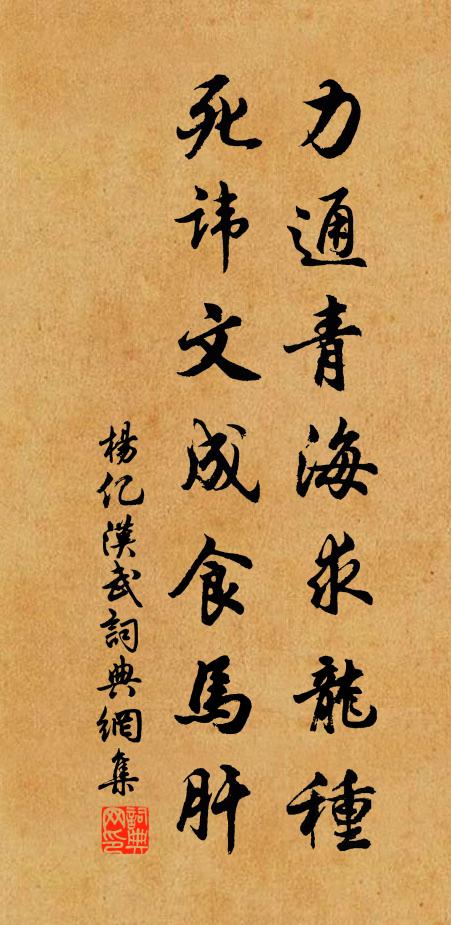 力通青海求龍種
死諱文成食馬肝
楊億漢武詞典網集
詞典網印